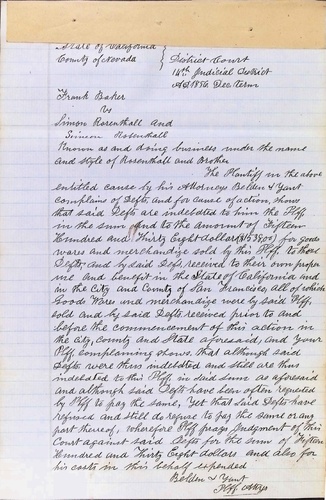 State of California
County of Nevada } District Court
14th Judicial District
AD 1856. Dec Term
Frank Baker
vs
Simon Rosenthall and
Simon Rosenthall
Known as and doing business under the name
and style of Rosenthall and Brother
The Plantiff in the above
entitled cause by his Attorneys Belden & Yant
complains of Defts, and for cause of action, shows
that said Defts are indebted to him the Plff
in the sum and to the amount of Fifteen
Hundred and Thirty Eight dollars for goods
wares and merchandize sold by this Plff, to those
Defts, and by said Defts, received to their own proper
use and benefit in the State of California and
in the City and County of San Francisco, all of which
Goods Wares and merchandize were by said Plff,
sold and by said Defts received prior to and
before the commencement of this action in
the City, County and State aforesaid, and your
Plff complaining shows. that although said
Defts. were thus indebted and still are thus
indebted to this Plff in said sum as aforesaid
and although said Defts have been often requested
by Plff to pay the same, Yet that said Defts have
refused and still do refuse to pay the same or any
part thereof, wherefore Plff prays Judgment of this
Court against said Defts for the sum of Fifteen
Hundred and Thirty Eight dollars and also for
his costs in this behalf expended
Belden & Yant
Plff Attys